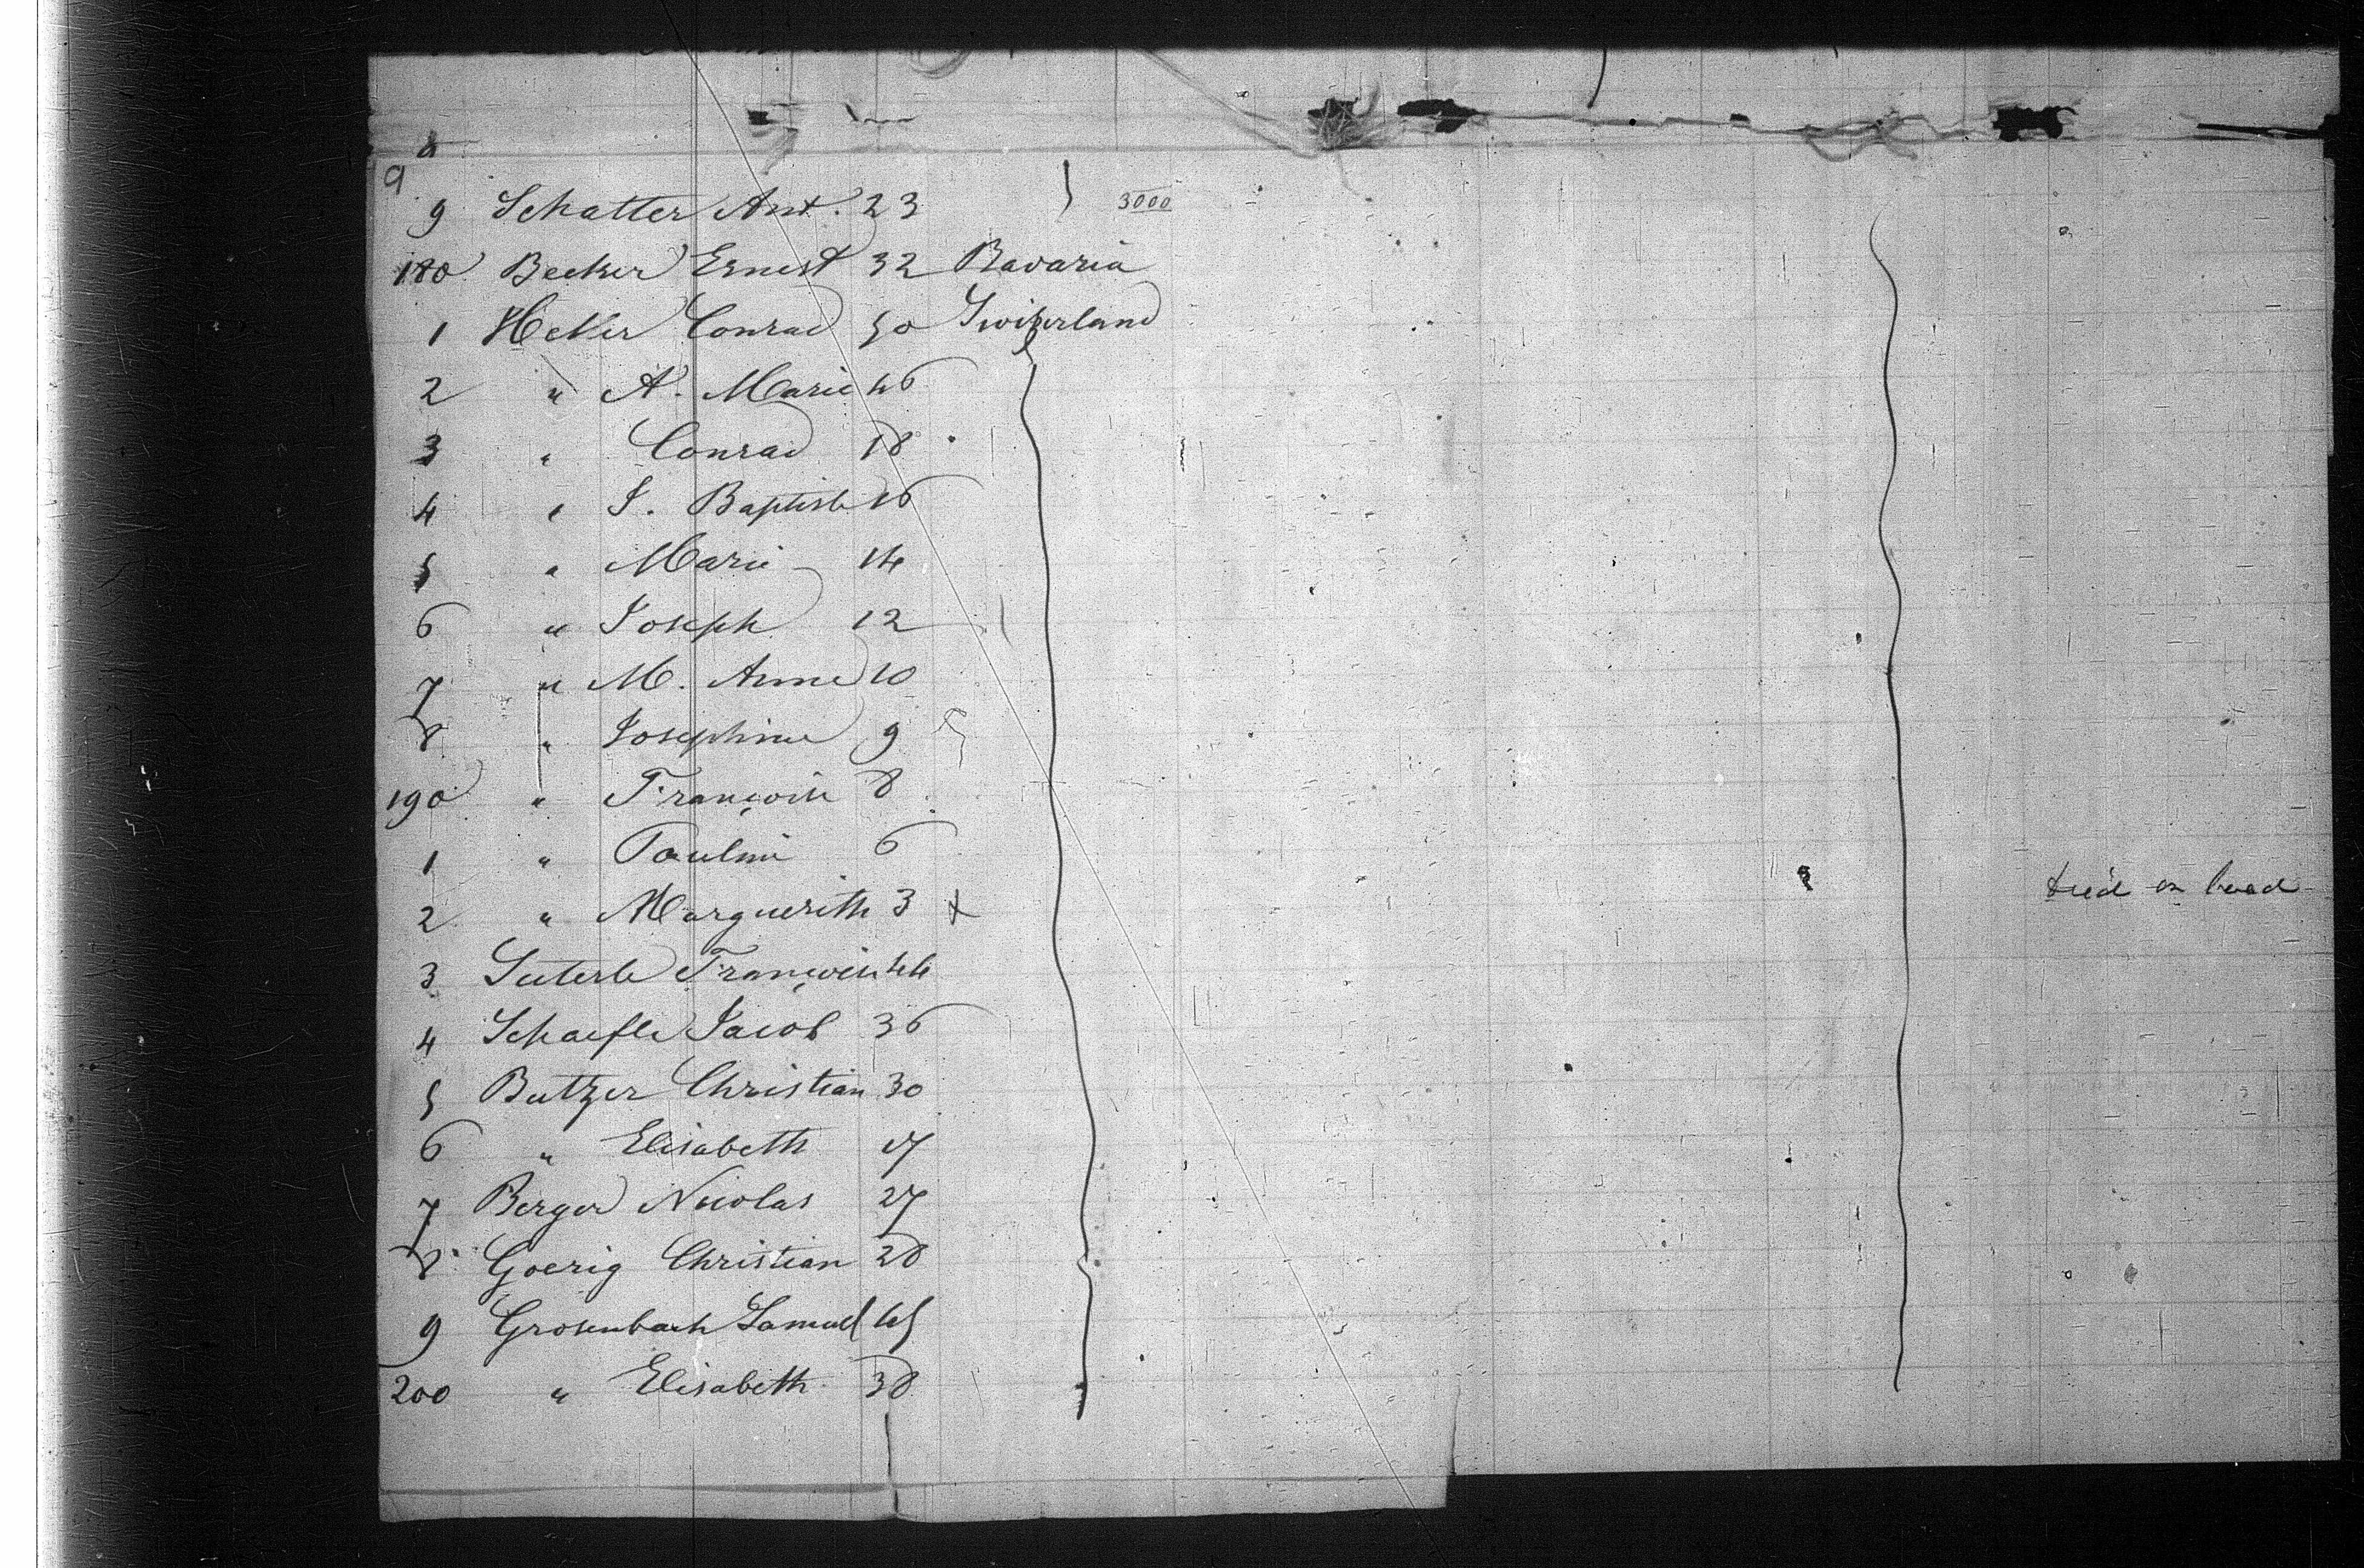 8
9
9 Schatter Ant. 23 3000
180 Becker Ernest 32 Bavaria
1 Heker Conrad 50 Switzerland
2 " A. Marie 46
3 " Conrad 18
4 " J. Baptiste 16
5 " Marie 14
6 " Joseph 12
7 " M. Anne 10
8 " Josephine 9
190 " Françoise 8
1 " Pauline 6
2 " Marguerithe 3 x died on board
3 Suterle François 44
4 Schaefle Jacob 36
5 Butzer Christian 30
6 " Elisabeth 17
7 Berger Nicolas 27
8 Goerig Christian 28
9 Grosenbach Samuel 45
200 " Elisabeth 38